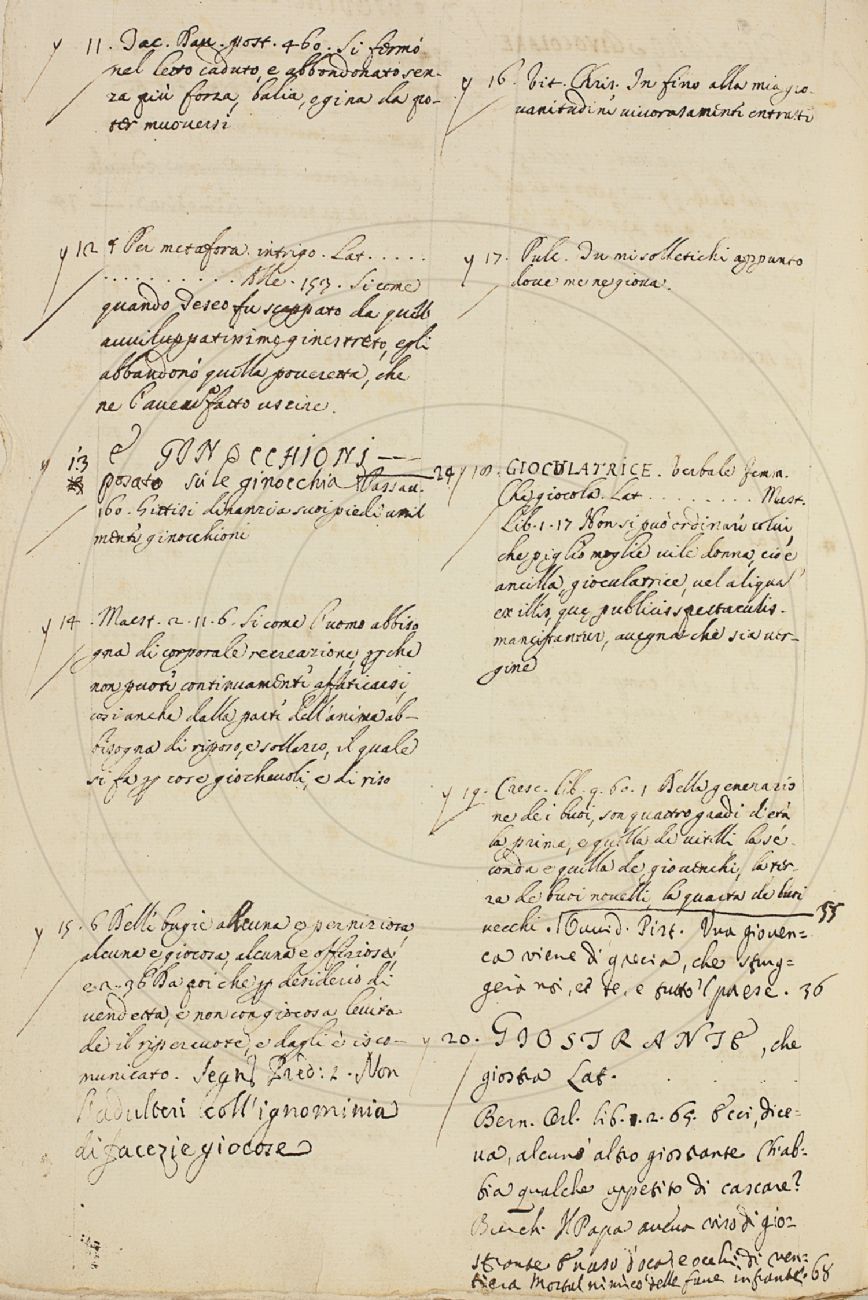 y 11. Jac. Pass. post. 460. Si fermò
nel letto caduto, e abbondonato sen-
za più forza, balia, e gina da po-
ter muoversi
y 12 Per metafora. intrigo. Lat. . . . . .
. . . . . . . . . . Alle. 153. Sicome
quando Teseo fu scappato da quell
avviluppatissimo ginestreto, egli
abbandonò quella poveretta, che
ne l'avea fatto uscire.
y 13 E GINOCCHIONI —
posato sù le ginocchia Passav.
160. Gittisi dinanzi a suoi piedi umil
mente ginocchioni
y 14. Maest. 2. 11. 6. Si come l'uomo abbiso
gna di corporale recreazione, perche
non puote continuamente affaticarsi,
così anche dalla parte dell'anima ab-
bisogna di riposo, e sollazzo, il quale
si fa per cose giochevoli, e di riso
y 15. 6 Delle bugie alcuna è perniziosa
alcuna è giocosa, alcuna è offiziosa,
e 2. 36 Da poi che per desiderio di
vendetta, e non con giocosa levita
de il ripercuote, e dagli è isco-
municato. Segn. Pred: 2. Non
l'adulteri coll'ignominia
di facezie giocose
y 16. Vit. Chris. In fino alla mia gio-
vanitudine vivorosamente entrasti
y 17. Pulc. Du mi solletichi appunto
dove me ne giova.
24 y 18. GIOCULATRICE. Verbale femm.
Che giocola. Lat. . . . . . . . . Maest.
Lib. 1. 17 Non si può ordinare colui
che piglio moglie vile donna, cioè
ancilla, gioculatrice, vel aliqua
ex illis, quę publicis spectaculis
mancipantur, avegna che sia ver-
gine
y 19. Cresc. lib. 9. 60. 1 Della generazio
ne de i buoi, son quattro gradi d'età
la prima, e quella de vitelli la se-
conda e quella de giovenchi, la ter-
za de buoi novelli, la quarta de buoi
vecchi. Ovvid. Pist. Una gioven= 55
ca viene di grecia, che strug=
gerà noi, et te, e tutto 'l paese. 36
y 20. GIOSTRANTE, che
giostra Lat. . . .
Bern. Orl. lib. 1. 2. 65. Ecci, dice-
va, alcuno altro giostrante Ch'ab-
bia qualche appetito di cascare?
Burch. Il Papa aveva viso di gio=
strante E naso d'oca, e occhi di ven=
tiera Mortal nimico delle fave infrante. 68